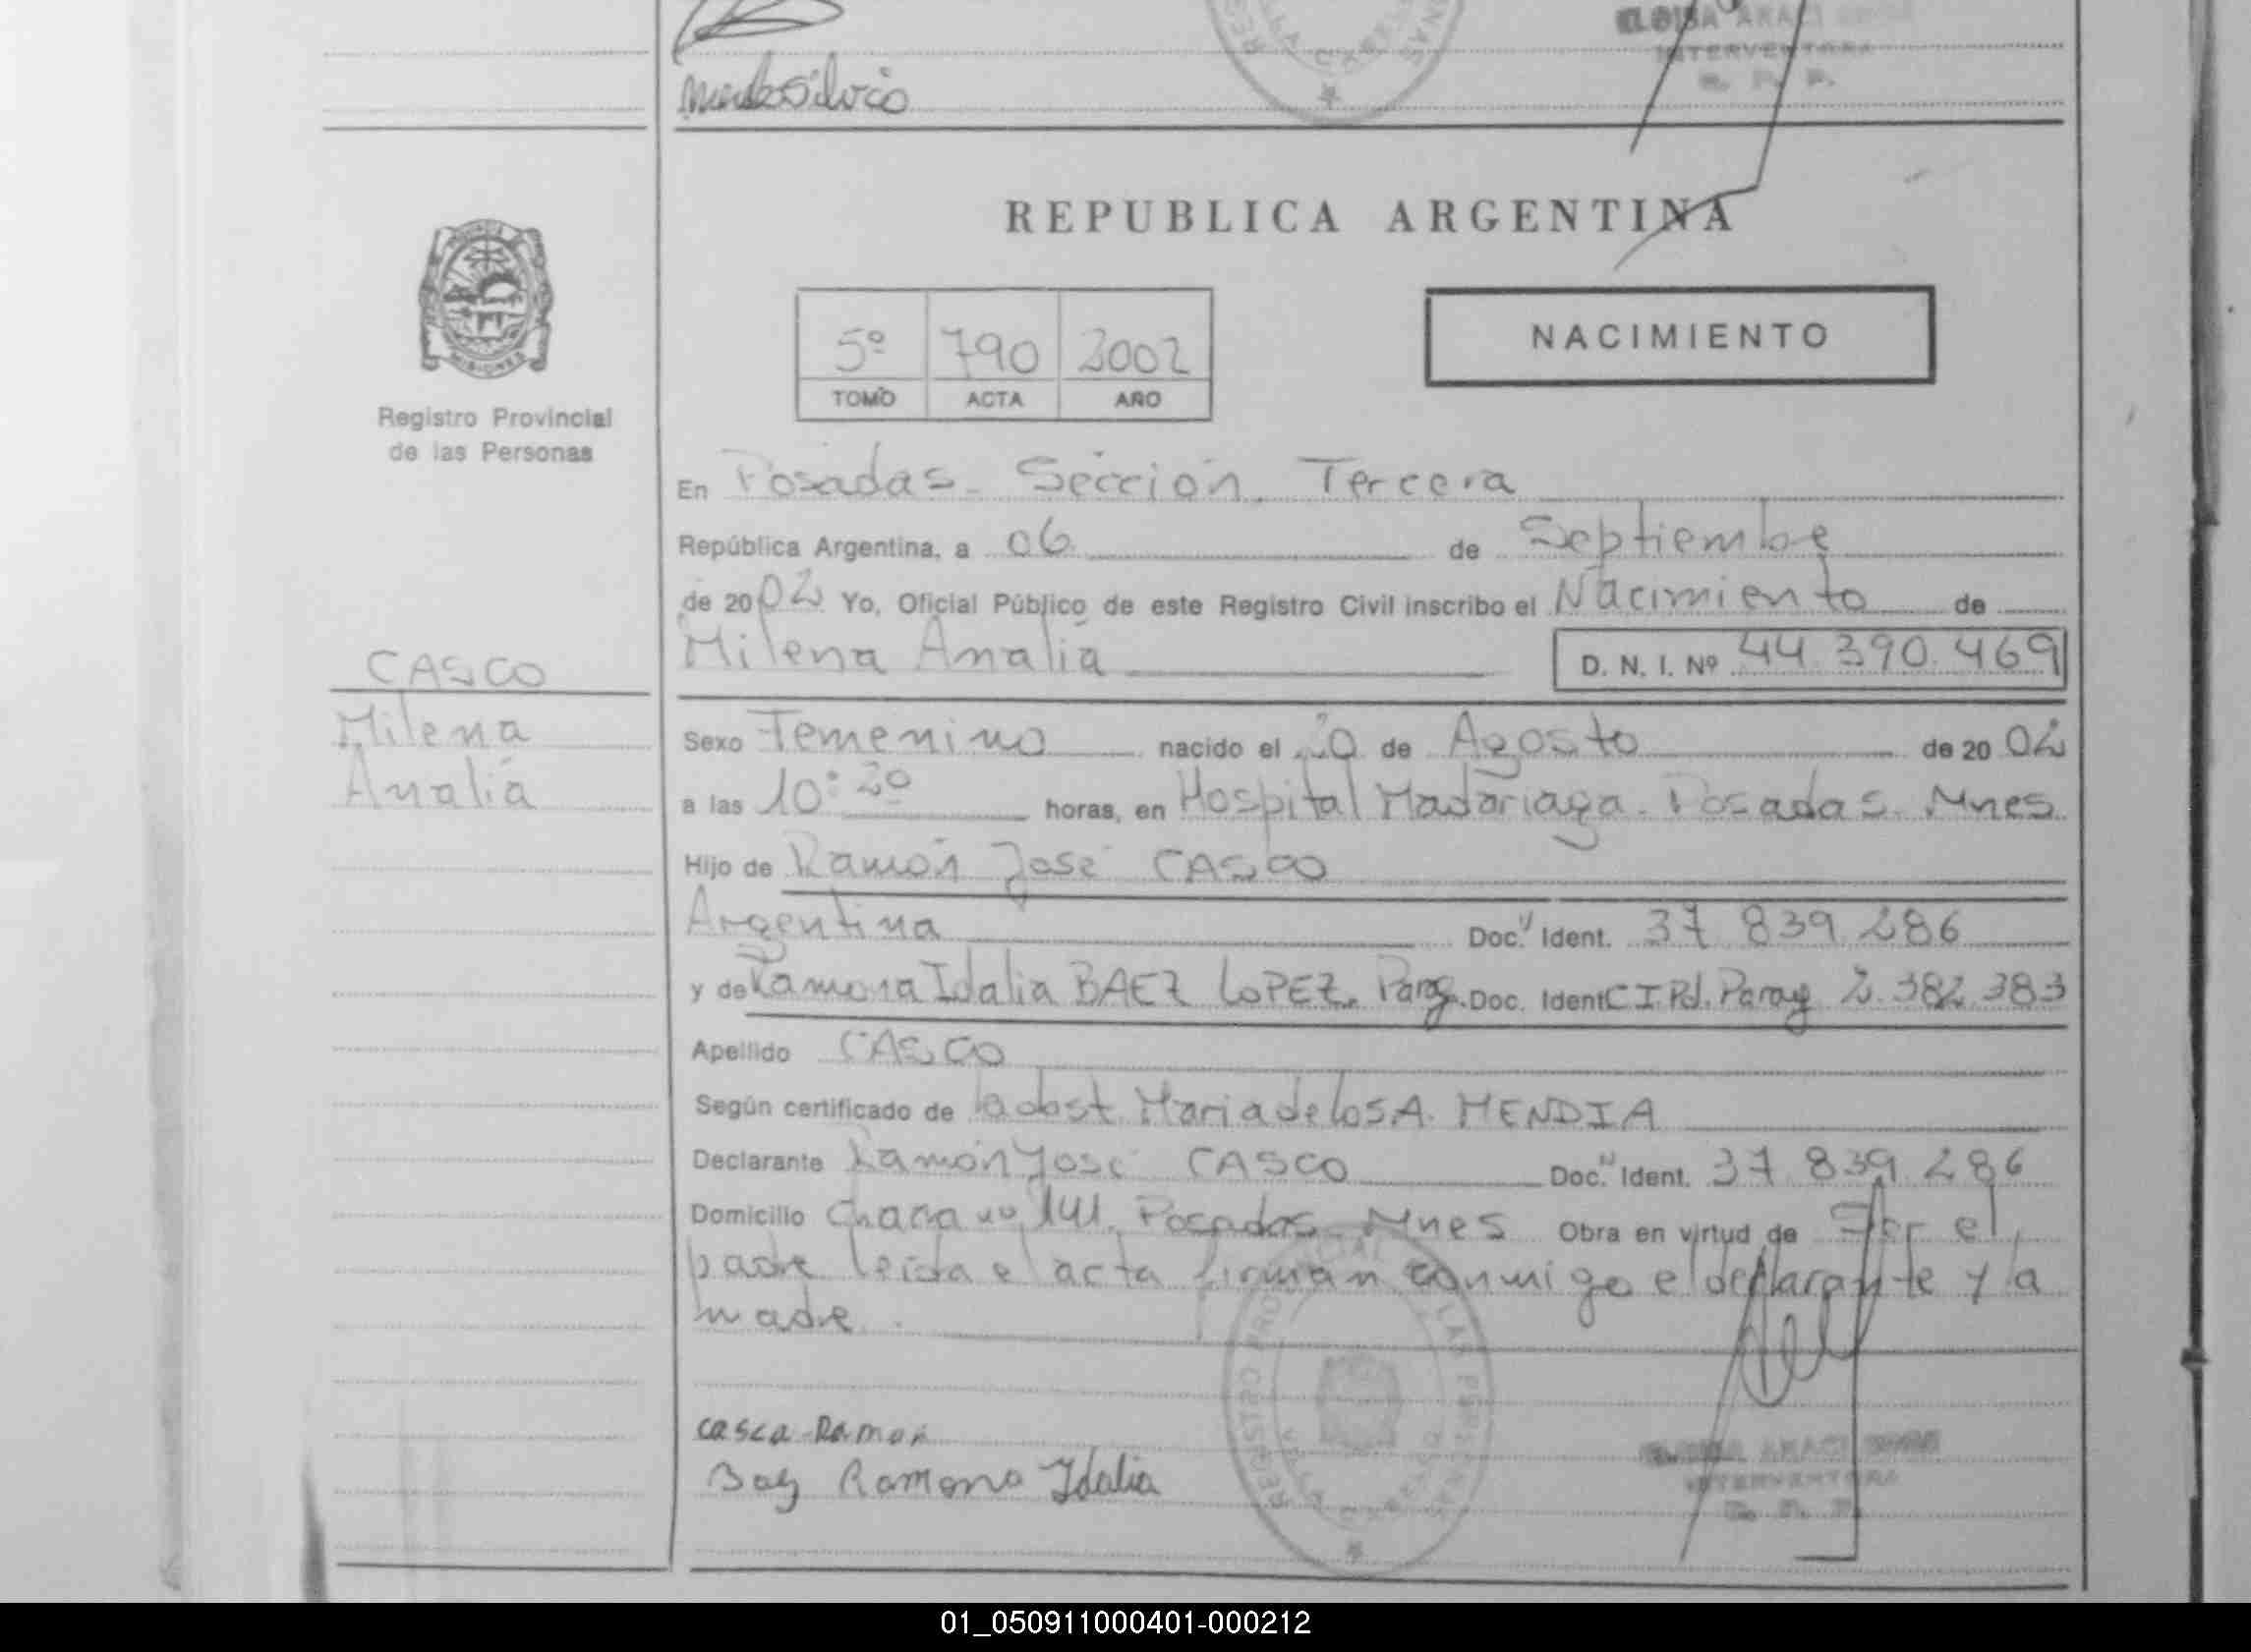 ELOISA ARACI
INTERVENTORA
R. P. P.
REPUBLICA ARGENTINA
5º 790 2002
TOMO ACTA AÑO
NACIMIENTO
MISIONES
Registro Provincial
de las Personas
En Posadas - Sección Tercera
República Argentina, a 06 de Septiembe
de 2002 Yo, Oficial Público de este Registro Civil inscribo el Nacimiento de
Milena Analia D. N. I. Nº 44 390 469
CASCO
Milena
Analia
Sexo Femenino nacido el 20 de Agosto de 2002
a las 10:20 horas, en Hospital Madariaga - Posadas - Mnes
Hijo de Ramón José CASCO
Argentina Doc. Ident. 37 839 286
y de Ramona Idalia BAEZ LOPEZ. Parag. Doc. Ident C I Pol. Paray 2.382.383
Apellido CASCO
Según certificado de la obst. Maria de los A. MENDIA
Declarante Ramón José CASCO Doc. Ident. 37 839 286
Domicilio Chacra nº 141. Posadas - Mnes Obra en virtud de Ser el
padre leida el acta firman conmigo el declarante y la
madre
REGISTRO PROVINCIAL LAS PERSONAS
casca Ramon
Baez Ramona Idalia
ARACI
INTERVENTORA
R. P. P.
01_050911000401-000212